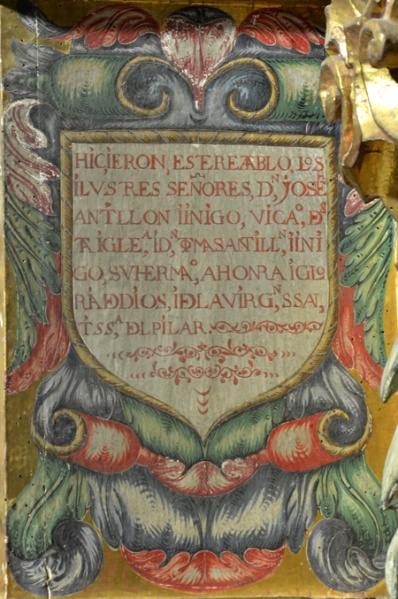 HIÇIERON, ESTEREABLO, LOS
ILVSTRES SEÑORES, Dⁿ, JOSE
ANTILLON IINIGO, VICAº, Dⁿ
IGLEᴬ, IDⁿ, ANTILLⁿ, IINI
GO, SVHERMAº, AHONRA, IGLO
RIADDIOS, IDLAVIRGⁿ, SSAI,
TSSᴬ DLPILAR